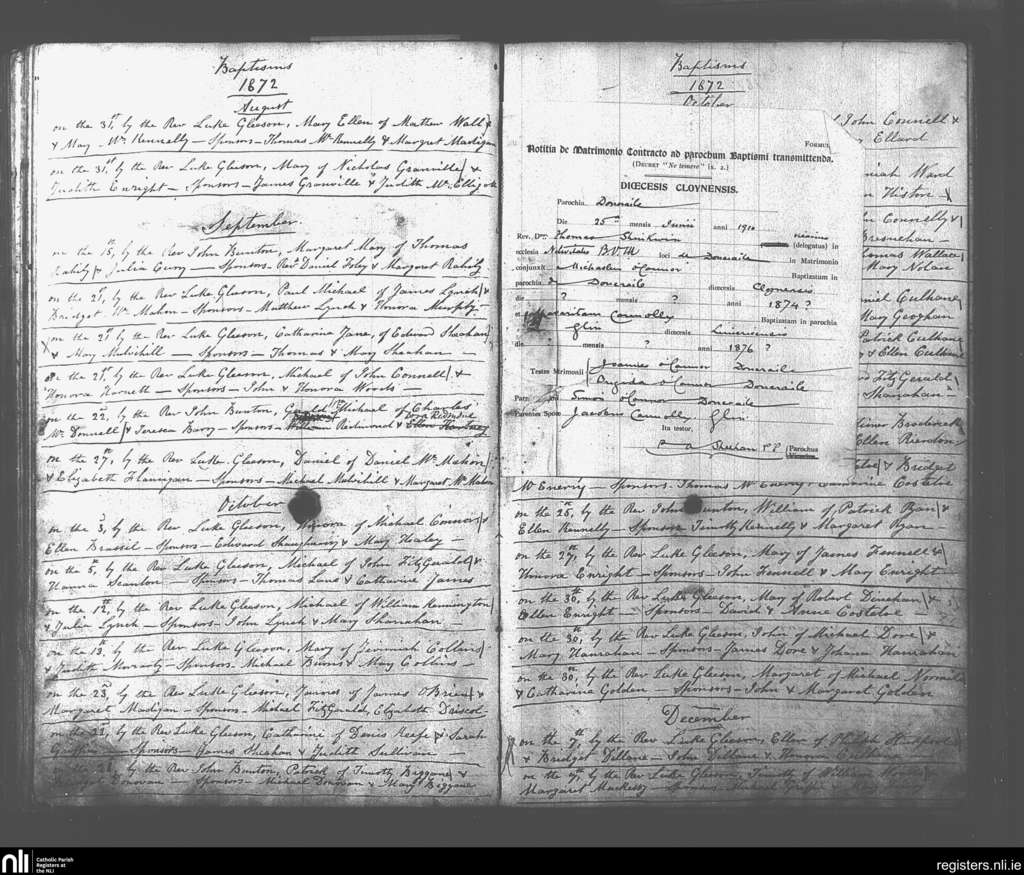 Baptisms
1872
August
on the 31st, by the Rev Luke Gleeson, Mary Ellen of Mathew Wall &
& Mary Mc Kennelly – Sponsors – Thomas Mc Kennelly & Margret Madigan
on the 31st, by the Rev Luke Gleeson, Mary of Nicholas Granville &
Judith Enright – Sponsors – James Granville & Judith Mc Elligott
September
on the 15th, by the Rev John Bunton, Margaret Mary of Thomas
& Julia – Sponsors – Revd Daniel Foley & Margaret
on the 21st, by the Rev Luke Gleeson, Paul Michael of James Lynch &
Bridget Mc Mahon – Sponsors – Matthew Lynch & Honora Murphy
on the 21st by the Rev Luke Gleeson, Catharine Jane, of Edward Sheahan
& Mary Mulvihill – Sponsors – Thomas & Mary Sheahan –
on the 21st, by the Rev Luke Gleeson, Michael of John Connell &
Honora – Sponsors – John & Honora Woods –
on the 22nd, by the Rev John Bunton, Michael of Charles
Mc Donnell & Teresa Barry – Sponsors – William Redmond &
on the 27th, by the Rev Luke Gleeson, Daniel of Daniel Mc Mahon
& Elizabeth Flannigan – Sponsors – Michael Mulvihill & Margaret Mc Mahon
October
on the 3rd, by the Rev Luke Gleeson, of Michael Connors &
Ellen Brassil – Sponsors – Edward Shaughnessy & Mary Healey –
on the 5th, by the Rev Luke Gleeson, Michael of John FitzGerald &
Hanna Scanlon – Sponsors – Thomas Lane & Catharine James
on the 12th, by the Rev Luke Gleeson, Michael of William Hennington
& Julia Lynch – Sponsors – John Lynch & Mary Shanahan –
on the 13th, by the Rev Luke Gleeson, Mary of Jeremiah Collins
& Judith Moriarty – Sponsors – Michael Burns & Mary Collins –
on the 23rd, by the Rev Luke Gleeson, James of James OBrien &
Margaret Madigan – Sponsors – Michael FitzGerald, Elizabeth Driscol
on the 22nd, by the Rev Luke Gleeson, Catharine of Denis Keefe & Sarah
Griffin – Sponsors – James Sheehan & Judith Sullivan –
by the Rev John Bunton, Patrick of Timothy Beggane &
Donovan – Sponsors – Michael Donovan & Mary Beggane
Baptisms
1872
October
John Connell &
Ellard
Formul
Notitia de Matrimonio Contracto ad parochum Baptismi transmittenda.
(Decret "Ne temere" ix. 2.)
DIŒCESIS CLOYNENSIS.
Parochia Doneraile
Die 25a mensis Junii anni 1910
Rev. Dnus Thomas Shinkwin vicarius (delegatus) in
ecclesia Nativitatis B.V.M loci de Doneraile in Matrimonio
conjunxit Michaelem O'Connor Baptizatum in
parochia de Doneraile dioecesis Cloynensis
die ? mensis ? anni 1874 ?
et Margaritam Connolly Baptizatam in parochia
Glin dioecesis Limericensis
die ? mensis " anni 1876 ?
Testes Matrimonii Joannes O'Connor Doneraile
Brigida O'Connor Doneraile
Simon O'Connor Doneraile
Parentes Sponsae Jacobus Connolly Glin
Ita testor,
P A Sheehan P P (Parochus
Ward
Histon
Connelly &
Bresnehan –
Thomas Wallace
Mary Nolan
Daniel Culhane
Mary Geoghan
Patrick Culhane
& Ellen Culhane
FitzGerald
Shanahan –
Broderick
Ellen Reardon
& Bridget
Mc Enerry – Sponsors – Thomas Mc Enerry & Catharine Costeloe
on the 25th, by the Rev John Bunton, William of Patrick Ryan &
Ellen Kennelly – Sponsors Timothy Kennelly & Margaret Ryan –
on the 27th, by the Rev Luke Gleeson, Mary of James Fennell &
Honora Enright – Sponsors – John Fennell & Mary Enright
on the 30th, by the Rev Luke Gleeson, Mary of Robert Donehan &
Ellen Enright – Sponsors – David & Anne Costeloe –
on the 30th, by the Rev Luke Gleeson, John of Michael Dore &
Mary Hanrahan – Sponsors – James Dore & Johana Hanrahan
on the 30th, by the Rev Luke Gleeson, Margaret of Michael
& Catharine Golden – Sponsors – John & Margaret Golden
December
on the 7th, by the Rev Luke Gleeson, Ellen of
& Bridget Dillane – John Dillane & Honora
on the by the Rev Luke Gleeson, Timothy of William
Margaret Mackessy – Sponsors – Michael
nli
Catholic Parish
Registers at
the NLI
registers.nli.ie